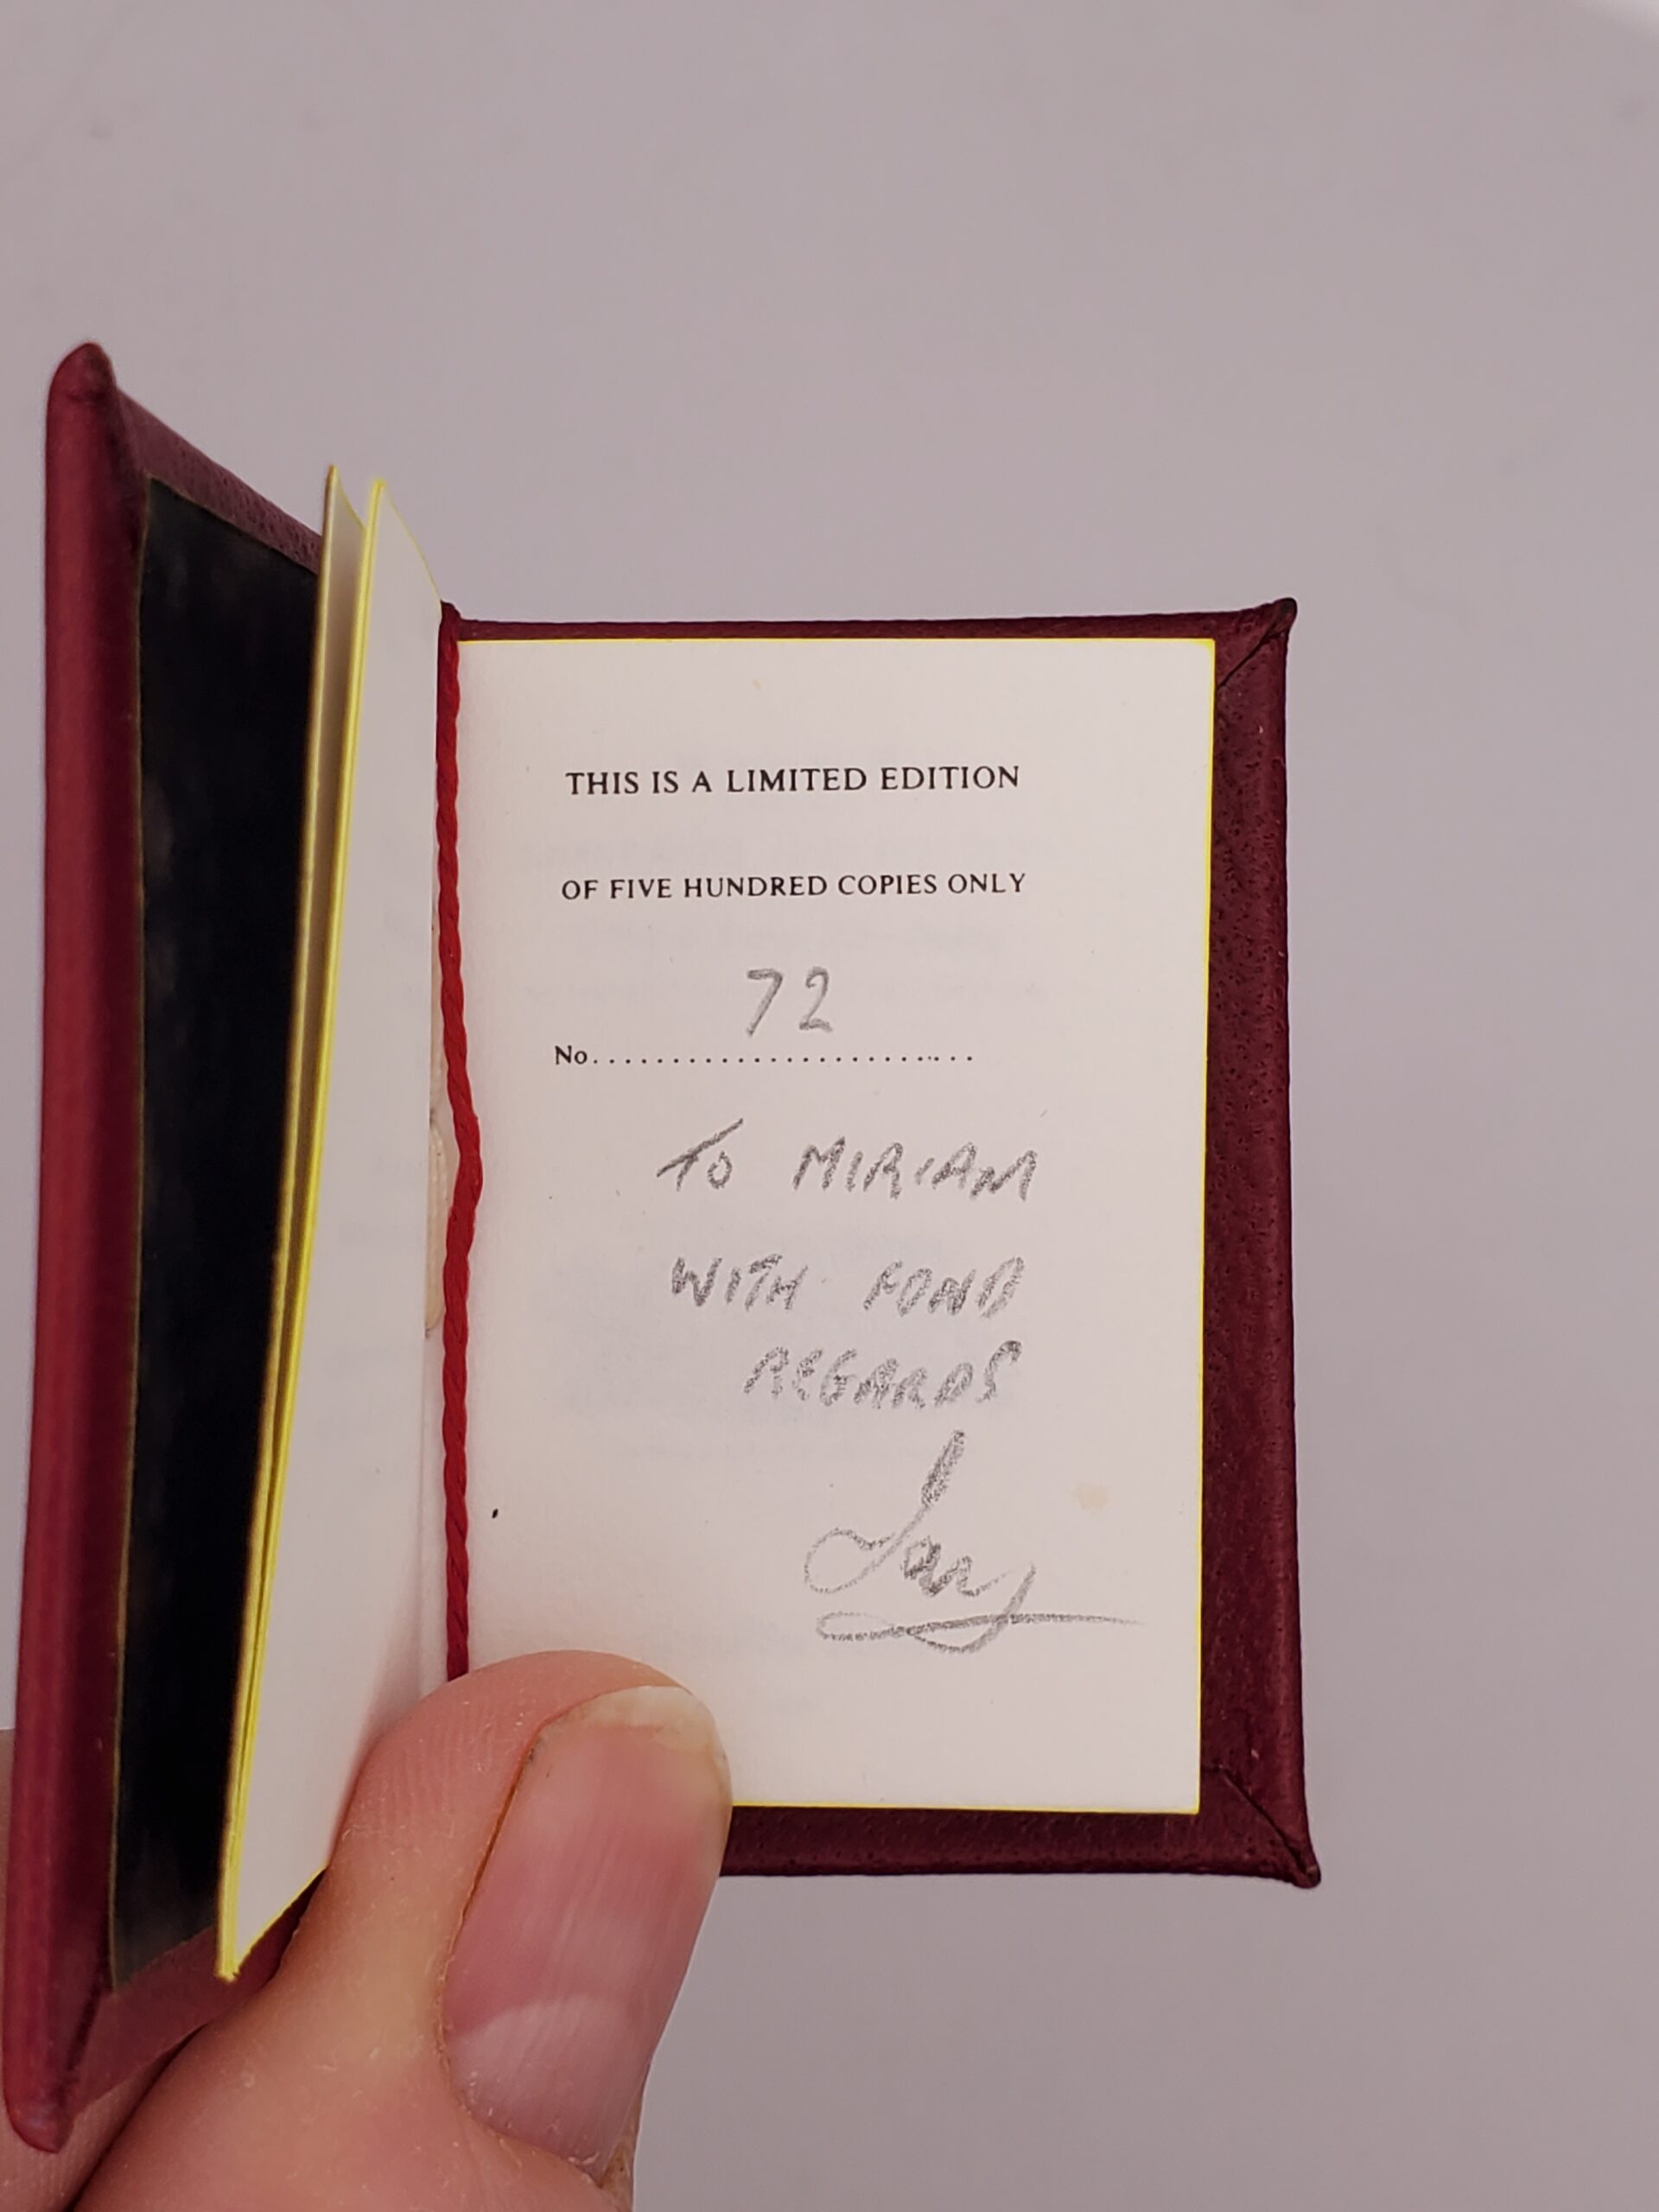 THIS IS A LIMITED EDITION
OF FIVE HUNDRED COPIES ONLY
72
No.........................
TO MIRIAM
WITH FOND
REGARDS